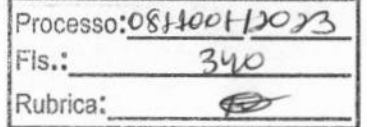 Processo:081001/2023
Fls.: 340
Rubrica: